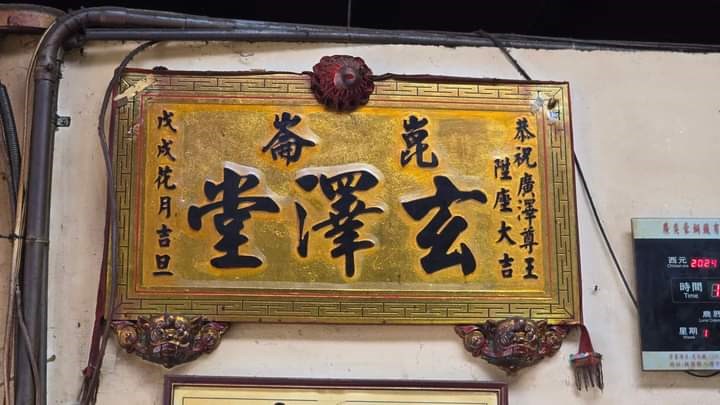 恭祝廣澤尊王
陞座大吉
崑崙
玄澤堂
戊戌花月吉旦
西元 2024
時間
Time
星期